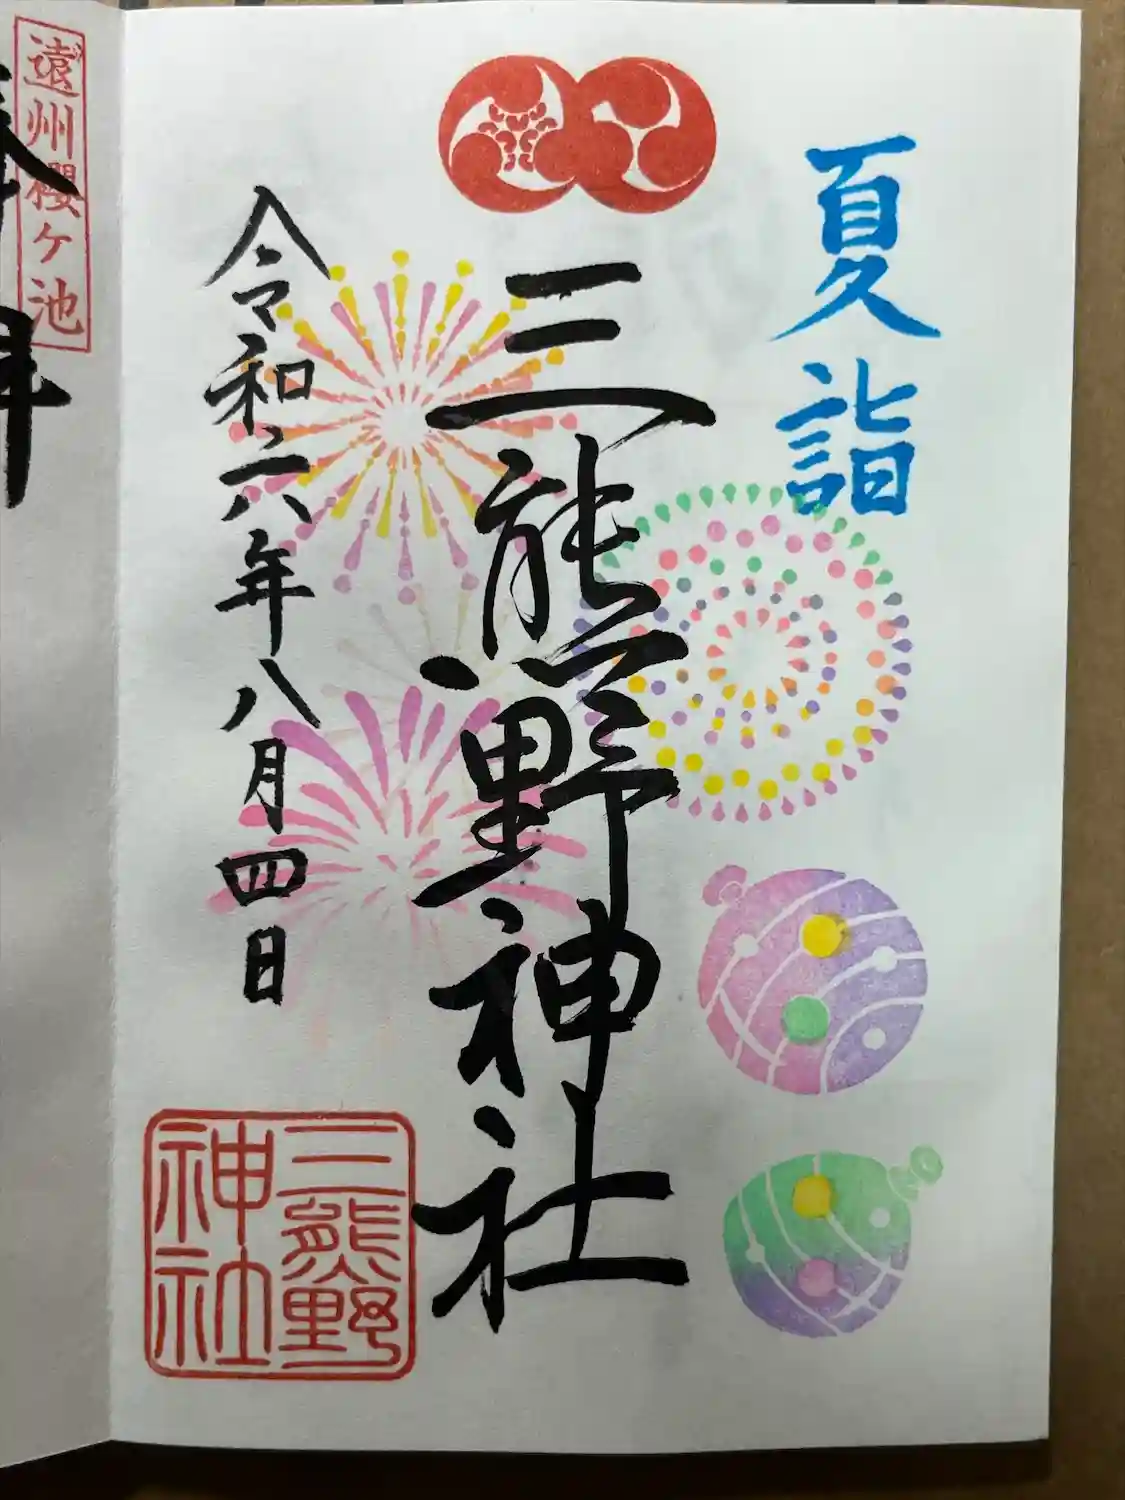 夏詣
三熊野神社
令和六年八月四日
三熊野
神社
遠州櫻ケ池